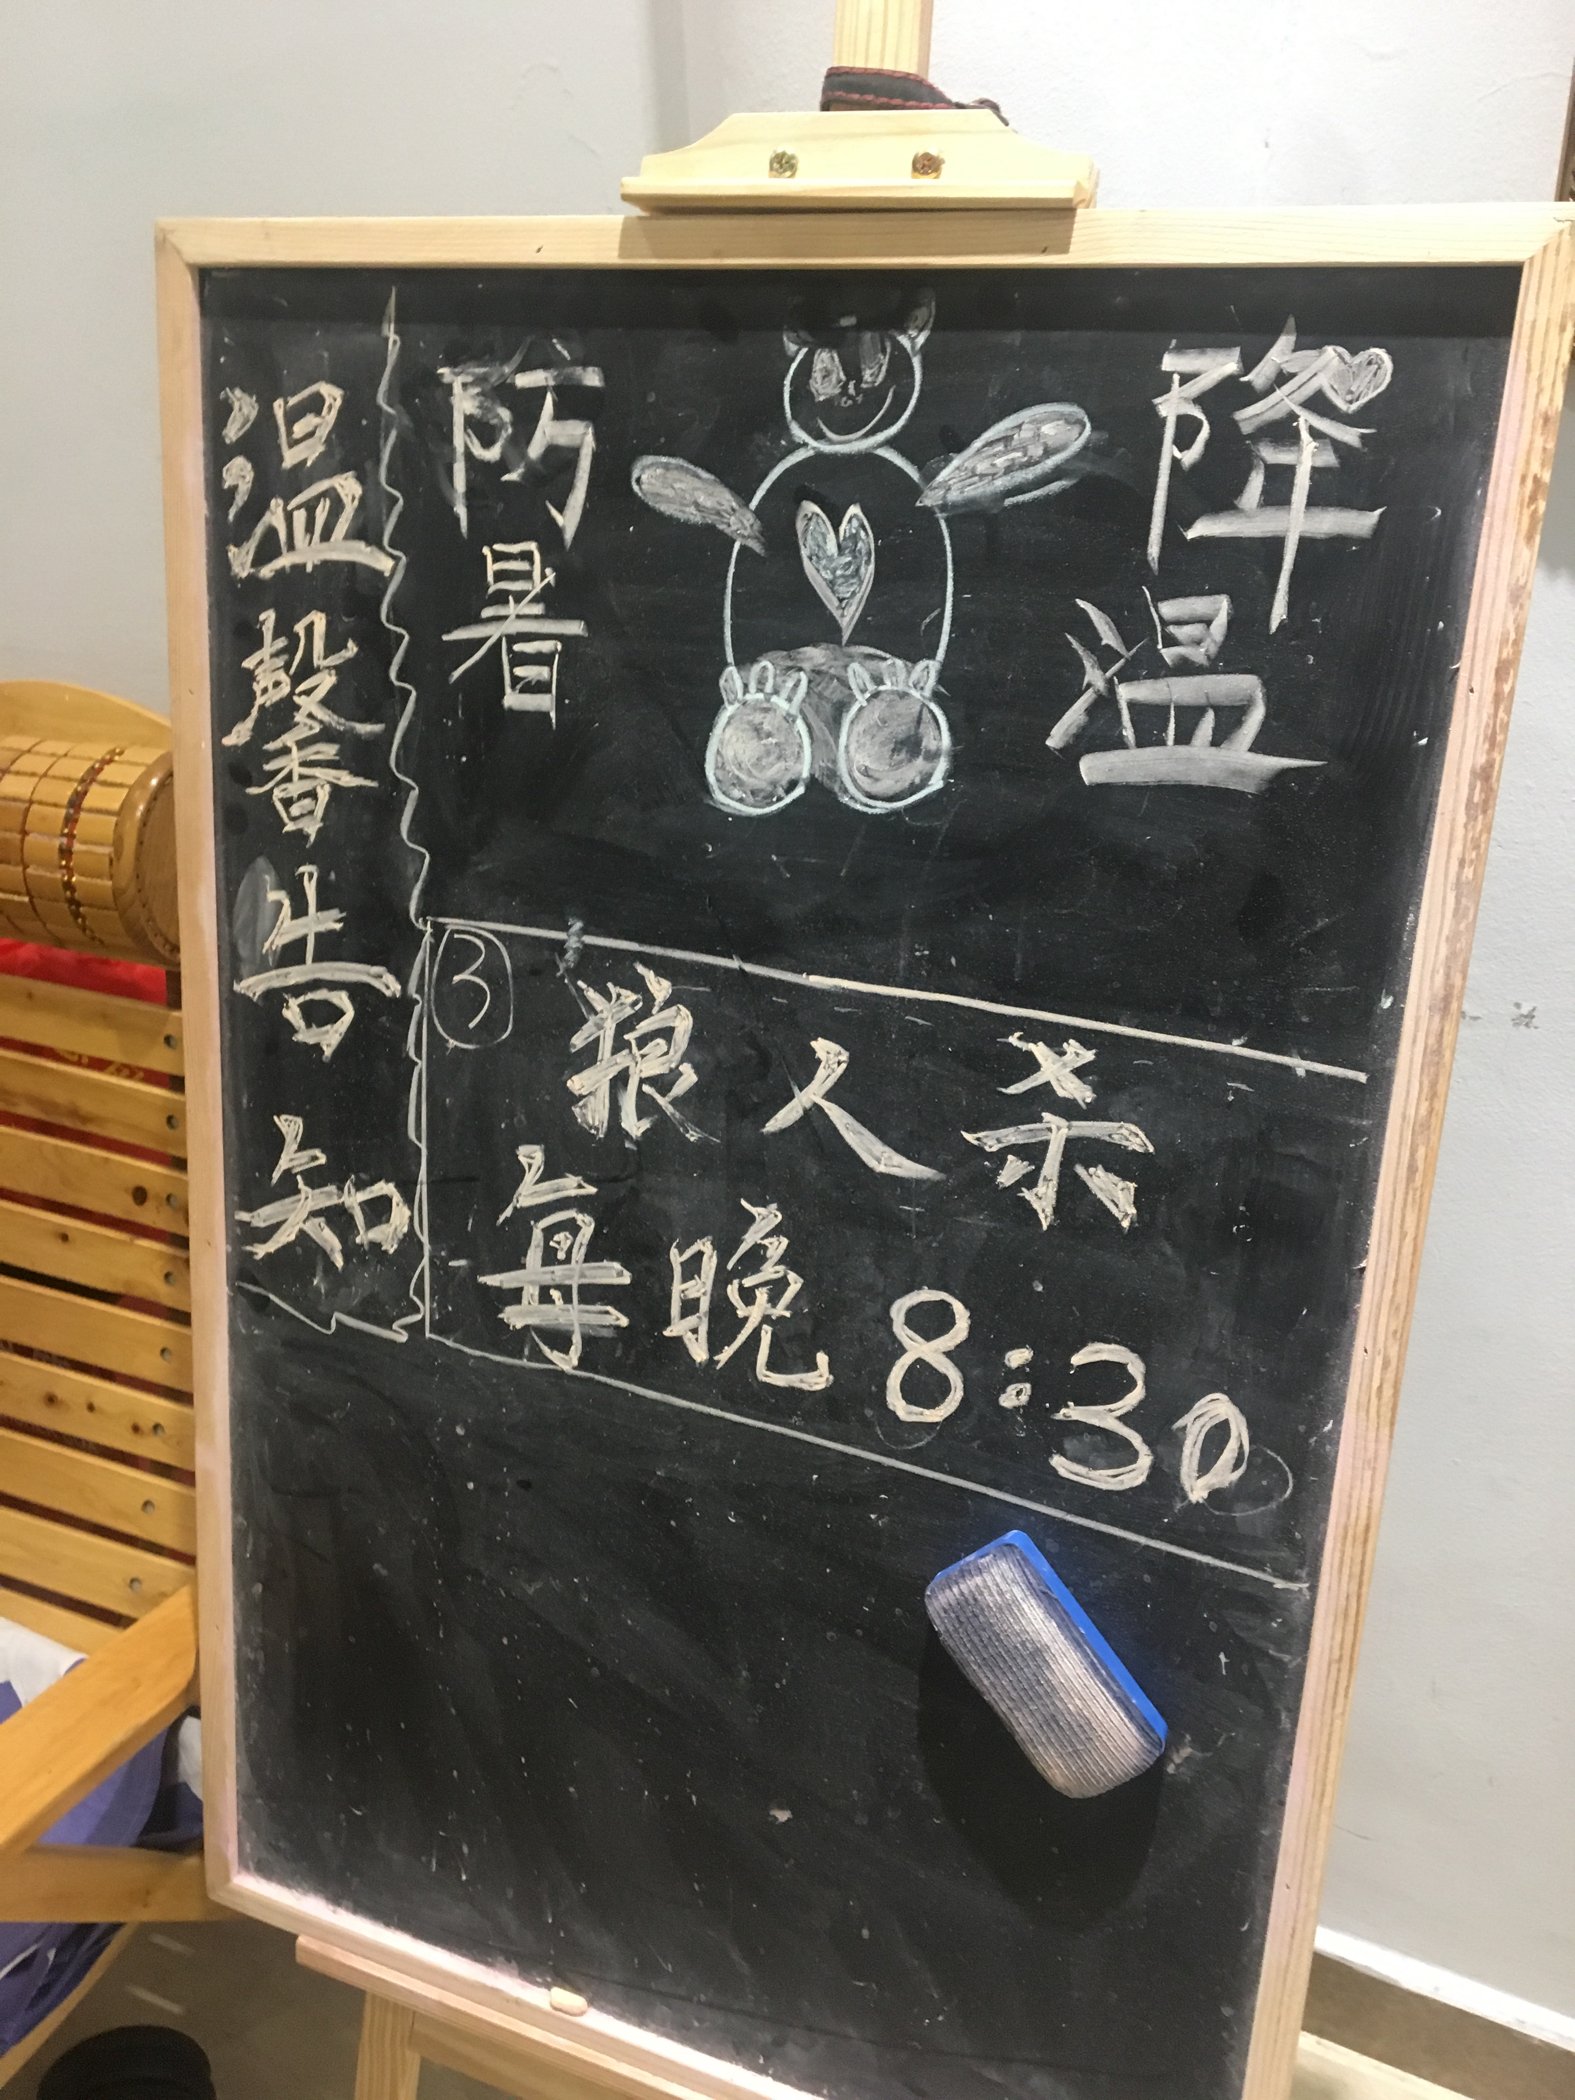 温馨告知
防暑
降温
③
狼人杀
每晚8:30